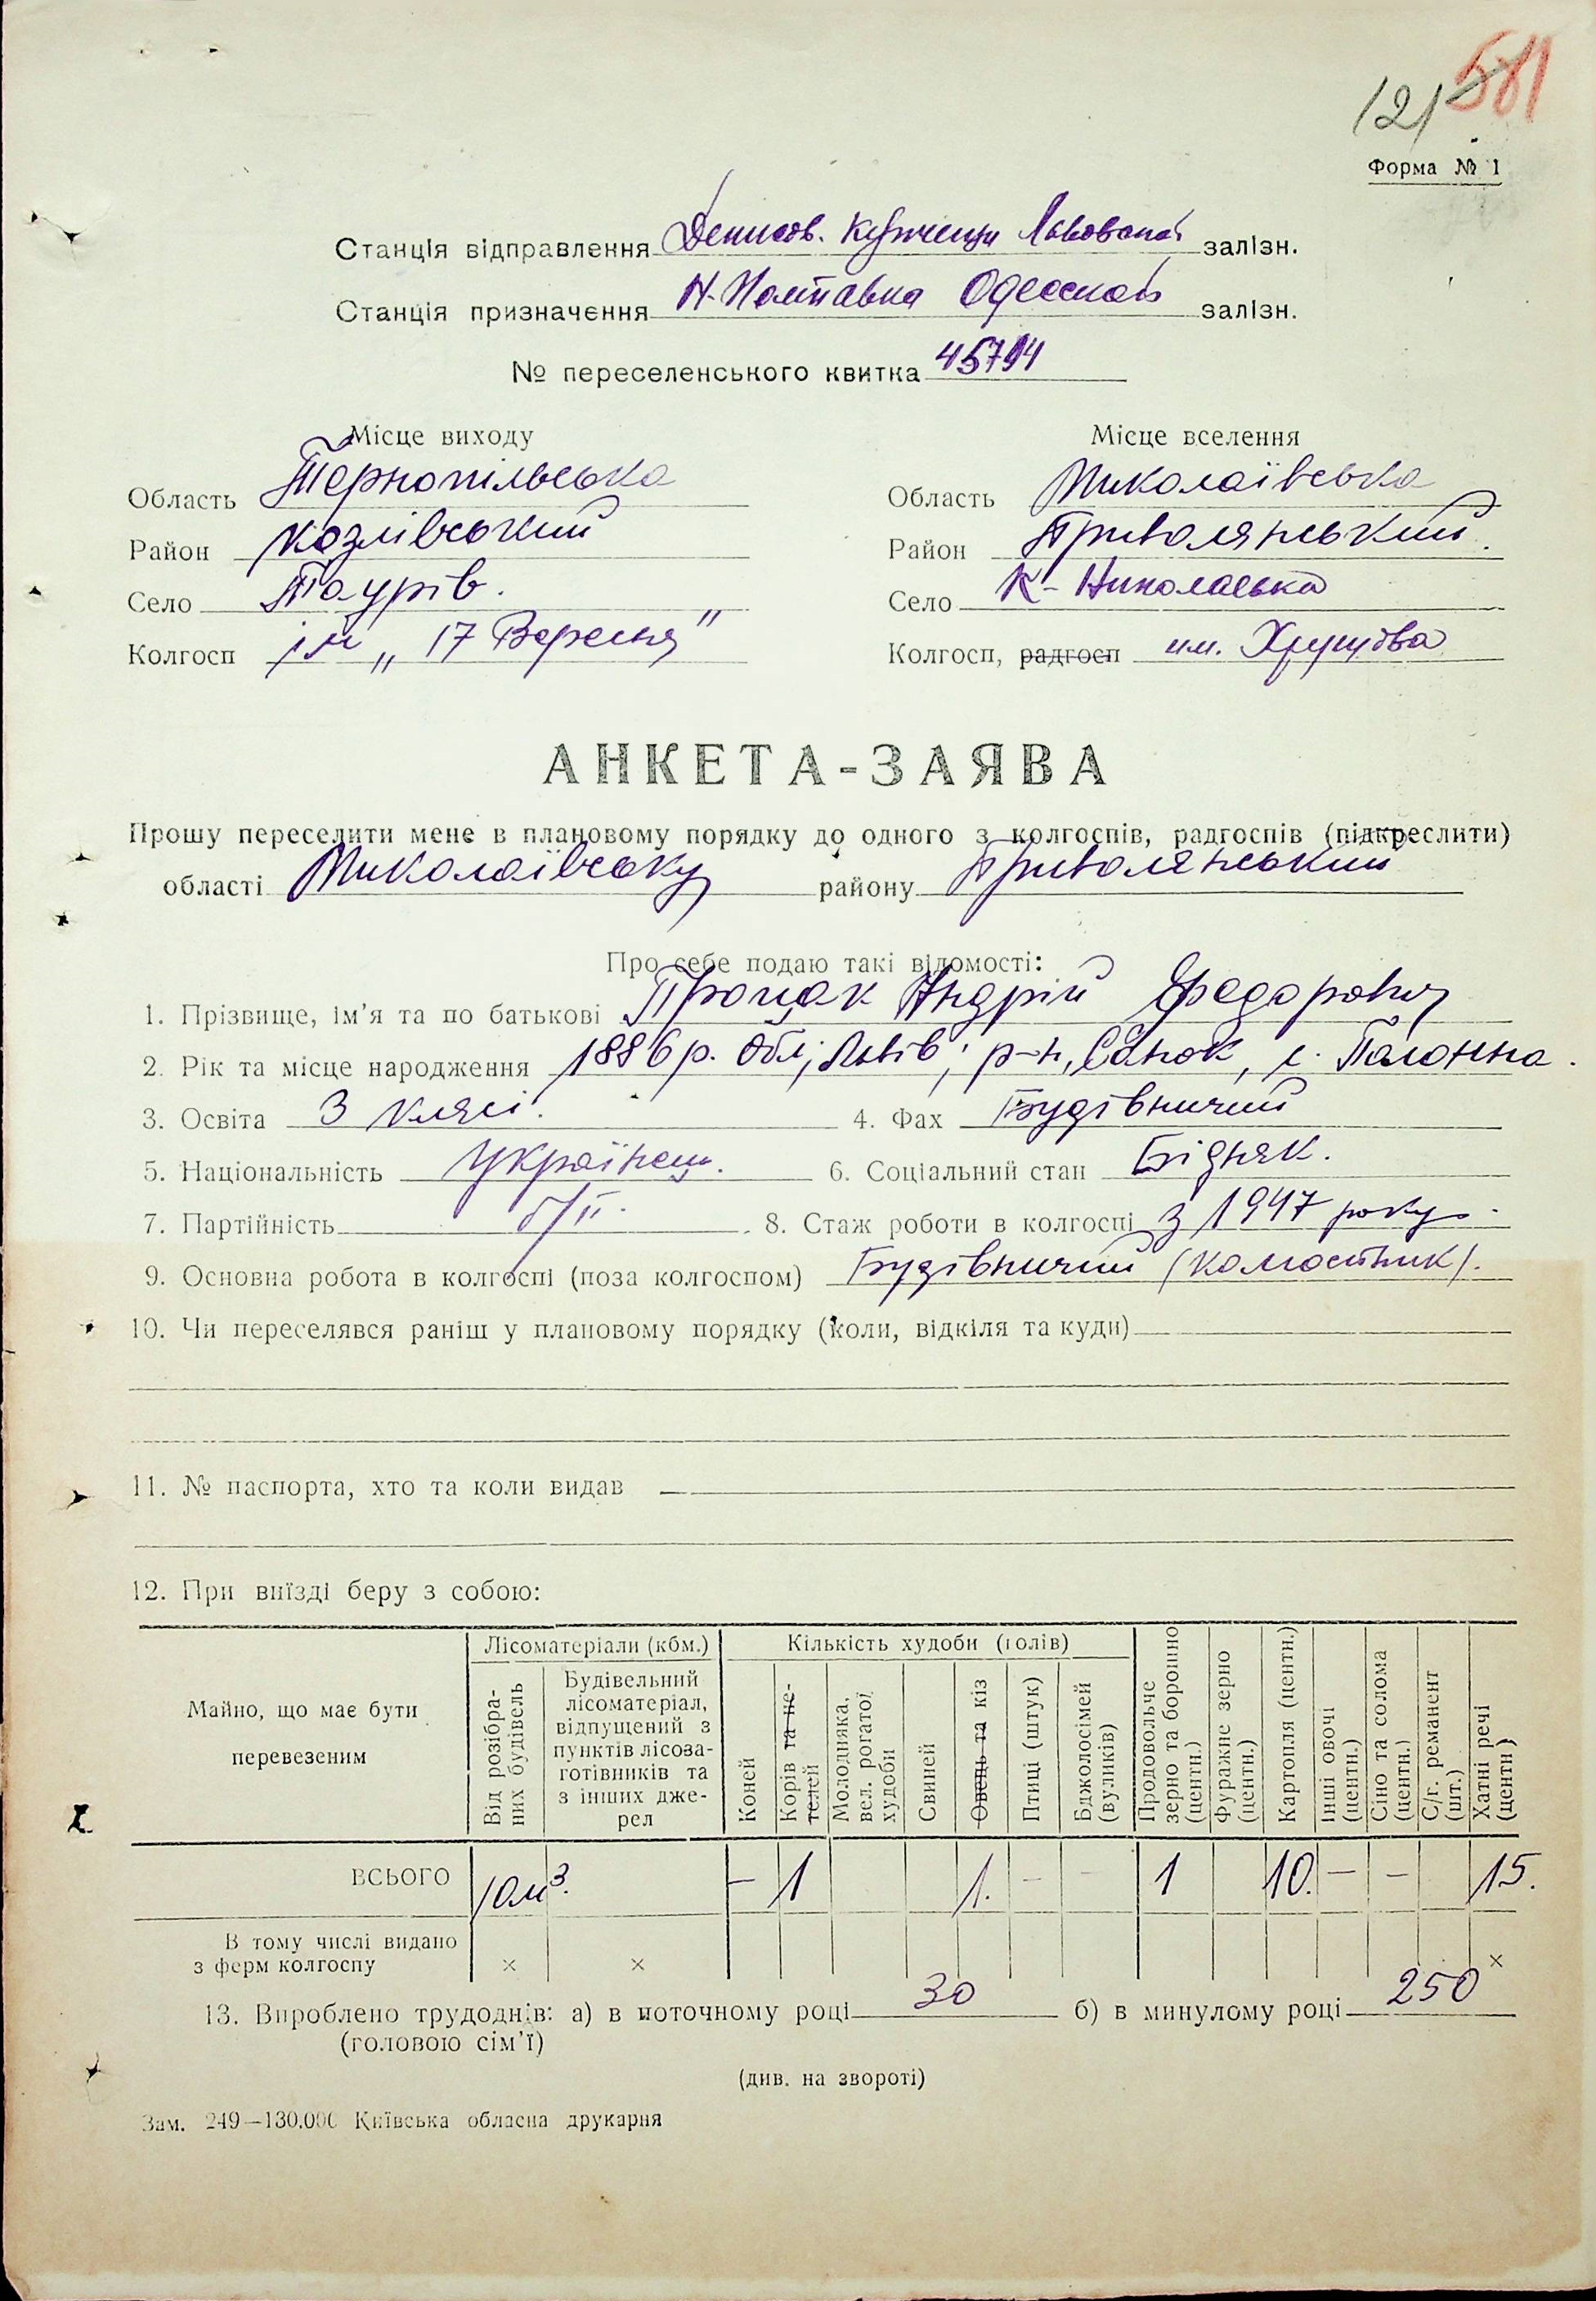 121 581
Форма № 1
Станція відправлення Денисов. Купчинци Львовской залізн.
Станція призначення Н-Полтавка Одесской залізн.
№ переселенського квитка
Місце виходу Місце вселення
Область Тернопільська Область Миколаївська
Район Козлівський Район Привольянський.
Село Таурів. Село К-Николаевка
Колгосп ім „17 Вересня" Колгосп, радгосп им. Хрущова
АНКЕТА-ЗАЯВА
Прошу переселити мене в плановому порядку до одного з колгоспів, радгоспів (підкреслити)
області Миколаївську району Привольянський
Про себе подаю такі відомості:
1. Прізвище, ім'я та по батькові Процак Андрій Федорович
2. Рік та місце народження 1886 р. обл; Львів; р-н, Санок, с. Полонна.
3. Освіта 3 кляси. 4. Фах Будівничий
5. Національність Українець. 6. Соціальний стан Бідняк.
7. Партійність б/п. 8. Стаж роботи в колгоспі з 1947 року.
9. Основна робота в колгоспі (поза колгоспом) Будівничий (колгостник).
10. Чи переселявся раніш у плановому порядку (коли, відкіля та куди)
11. № паспорта, хто та коли видав
12. При виїзді беру з собою:
Майно, що має бути перевезеним
Лісоматеріали (кбм.)
Від розібраних будівель
Будівельний лісоматеріал, відпущений з пунктів лісозаготівників та з інших джерел
Кількість худоби (голів)
Коней
Корів та нетелей
Молодняка, вел. рогатої худоби
Свиней
Овець та кіз
Птиці (штук)
Бджолосімей (вуликів)
Продовольче зерно та борошно (центн.)
Фуражне зерно (центн.)
Картопля (центн.)
Інші овочі (центн.)
Сіно та солома (центн.)
С/г. реманент (шт.)
Хатні речі (центн)
ВСЬОГО 10 м³. – 1 1. – – 1 10. – – 15.
В тому числі видано з ферм колгоспу × × ×
13. Вироблено трудоднів: а) в поточному році 30 б) в минулому році 250
(головою сім'ї)
(див. на звороті)
Зам. 249—130.000 Київська обласна друкарня